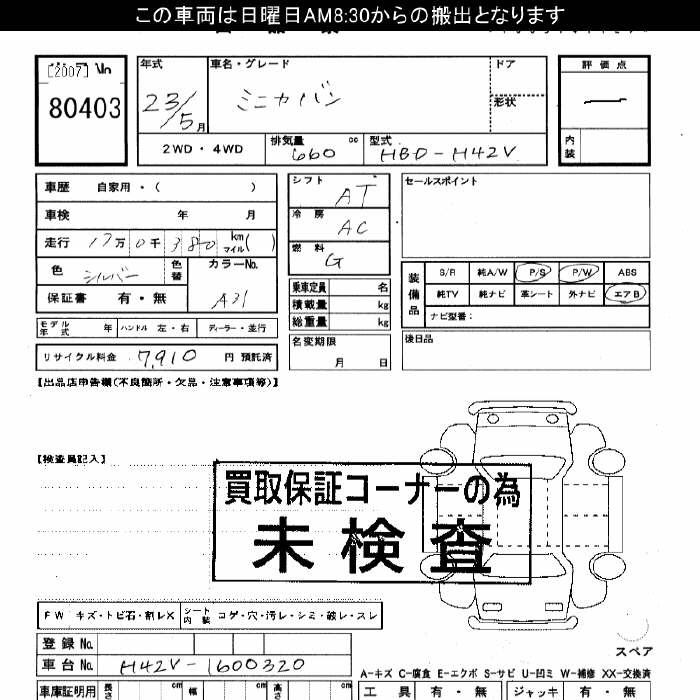 この車両は日曜日AM8:30からの搬出となります
[2007] No
80403
年式 23/5月
車名・グレード ミニカバン
ドア
形状
評価点 ―
内装
2WD・4WD
排気量 660 cc
型式 HBD-H42V
車歴 自家用・( )
車検 年 月
走行 17万0千380 km マイル( )
色 シルバー 色替
カラーNo. A31
保証書 有・無
モデル年式 年 ハンドル 左・右 ディーラー・並行
リサイクル料金 7,910 円 預託済
シフト AT
冷房 AC
燃料 G
乗車定員 名
積載量 kg
総重量 kg
名変期限 月 日
セールスポイント
装備品
S/R 純A/W P/S P/W ABS
純TV 純ナビ 革シート 外ナビ エアB
ナビ型番:
後日品
【出品店申告欄(不良箇所・欠品・注意事項等)】
【検査員記入】
買取保証コーナーの為
未検査
FW キズ・トビ石・割レX
シート内装 コゲ・穴・汚レ・シミ・破レ・スレ
登録No.
車台No. H42V-1600320
スペア
A-キズ C-腐食 E-エクボ S-サビ U-凹ミ W-補修 XX-交換済
車庫証明用 長さ cm 幅 cm 高さ cm
工具 有・無 ジャッキ 有・無